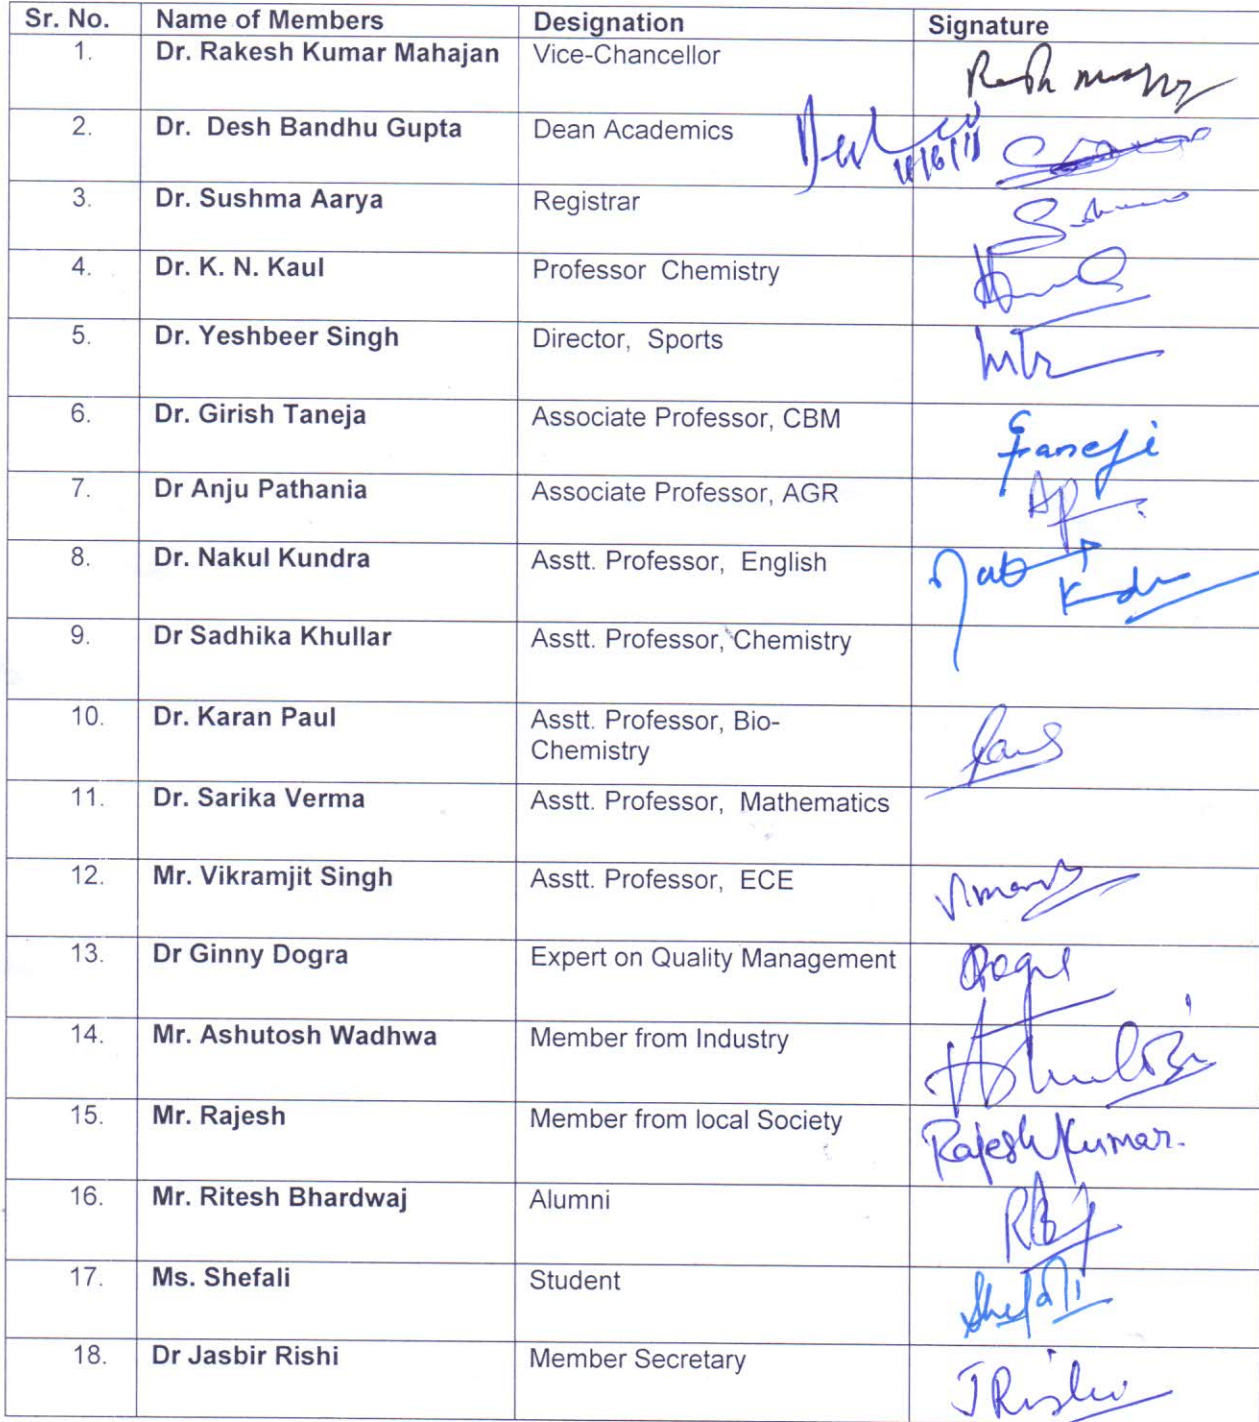 Sr. No. Name of Members Designation Signature
1. Dr. Rakesh Kumar Mahajan Vice-Chancellor
2. Dr. Desh Bandhu Gupta Dean Academics
3. Dr. Sushma Aarya Registrar
4. Dr. K. N. Kaul Professor Chemistry
5. Dr. Yeshbeer Singh Director, Sports
6. Dr. Girish Taneja Associate Professor, CBM
7. Dr Anju Pathania Associate Professor, AGR
8. Dr. Nakul Kundra Asstt. Professor, English
9. Dr Sadhika Khullar Asstt. Professor, Chemistry
10. Dr. Karan Paul Asstt. Professor, Bio-
Chemistry
11. Dr. Sarika Verma Asstt. Professor, Mathematics
12. Mr. Vikramjit Singh Asstt. Professor, ECE
13. Dr Ginny Dogra Expert on Quality Management
14. Mr. Ashutosh Wadhwa Member from Industry
15. Mr. Rajesh Member from local Society Rajesh Kumar.
16. Mr. Ritesh Bhardwaj Alumni
17. Ms. Shefali Student Shefali
18. Dr Jasbir Rishi Member Secretary JRishi